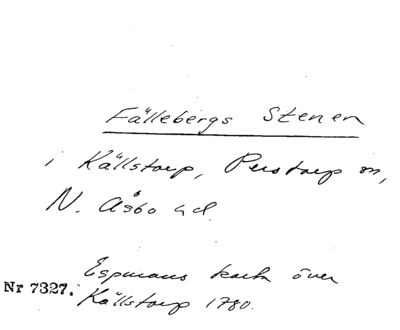 Fällebergs Stenen
i Källstorp, Perstorp sn,
N. Åsbo hd.
Espmans karta över
Nr 7327. Källstorp 1780.